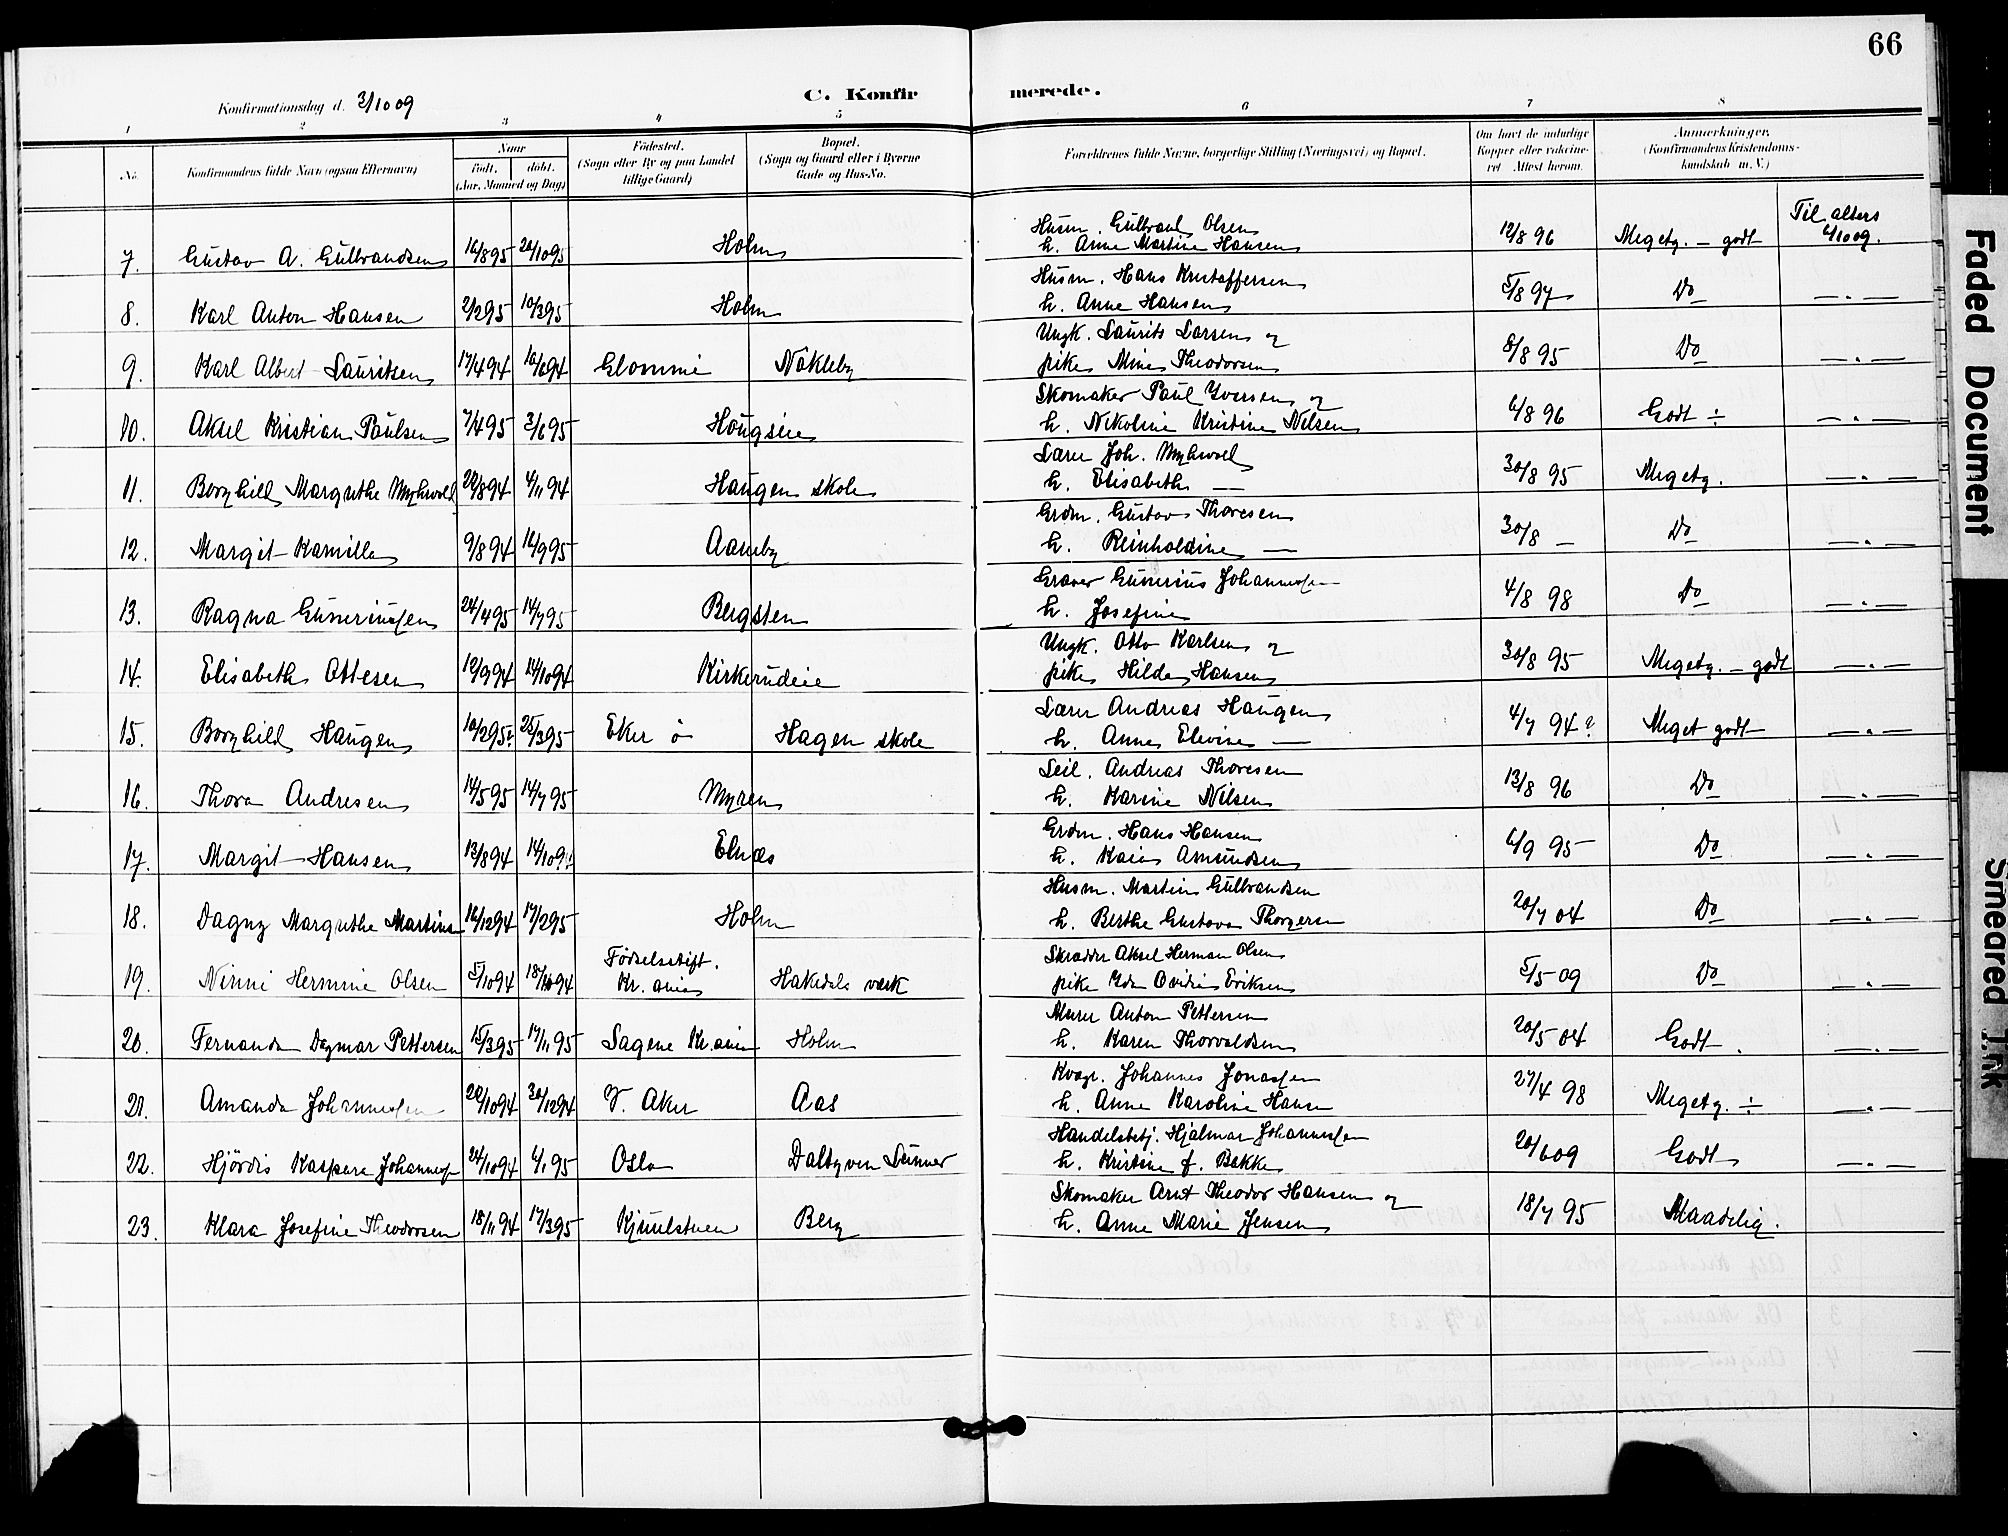 66
Konfirmationsdag d. 3/10 09
C. Konfirmerede.
1 2 3 4 5 6 7 8
No.
Konfirmandens fulde Navn (ogsaa Efternavn)
Naar
født. døbt.
(Aar, Maaned og Dag)
Fødested.
(Sogn eller By og paa Landet
tillige Gaard)
Bopæl.
(Sogn og Gaard eller i Byerne
Gade og Hus-No.
Forældrenes fulde Navne, borgerlige Stilling (Næringsvei) og Bopæl.
Om havt de naturlige
Kopper eller vaccine-
ret Attest herom.
Anmærkninger,
(Konfirmandens Kristendoms-
kundskab m. V.)
Til alters
4/10 09.
Husm. Gulbrand Olsen
7. Gustav A. Gulbrandsen 16/8 95 20/10 95 Holm h. Anne Martine Hansen 12/8 96 Megetg. - godt
Husm. Hans Kristoffersen
8. Karl Anton Hansen 2/2 95 10/3 95 Holm h. Anne Hansen 5/8 97 Do — " —
Ungk. Laurits Larsen og
9. Karl Albert Lauritsen 17/4 94 10/6 94 Glommi Nökleby pike Mina Theodorsen 8/8 95 Do — " —
Skomaker Paul Iversen og
10. Aksel Kristian Paulsen 7/4 95 3/6 95 Haugseie h. Nikoline Kristine Nilsen 6/8 96 Godt ÷ — " —
Lærer Joh. Myhrvold
11. Borghild Margrethe Myhrvold 20/8 94 4/11 94 Haugen skole h. Elisabeth — 30/8 95 Megetg. — " —
Grdm. Gustav Thoresen
12. Margit Kamilla 9/8 94 16/9 95 Aaneby h. Reinholdine — 30/8 — Do — " —
Graver Gunerius Johannessen
13. Ragna Guneriussen 24/4 95 14/7 95 Bergsten h. Josefine 4/8 98 Do — " —
Ungk. Otto Karlsen og
14. Elisabeth Ottesen 12/9 94 14/10 94 Kirkerudeie pike Hilda Hansen 30/8 95 Megetg. - godt — " —
Lærer Andreas Haugen
15. Borghild Haugen 10/2 95? 25/3 95 Eker ö Hagen skole h. Anne Elevine — 4/7 94? Meget godt — " —
Leil. Andreas Thoresen
16. Thora Andresen 14/5 95 14/7 95 Myren h. Karine Nilsen 13/8 96 Do — " —
Grdm. Hans Hansen
17. Margit Hansen 13/8 94 14/10 9?? Elnæs h. Kaia Amundsen 6/9 95 Do — " —
Husm. Martin Gulbrandsen
18. Dagny Margrethe Martinsen 16/12 94 17/2 95 Holm h. Berthe Gustava Thorgersen 20/7 04 Do — " —
Fødselsstift. Skrædder Aksel Herman Olsen
19. Ninni Hermine Olsen 5/10 94 18/10 94 Kr.ania Hakedals værk pike Ida Ovidia Eriksen 5/5 09 Do — " —
Murer Anton Pettersen
20. Fernanda Dagmar Pettersen 15/3 95 17/11 95 Sagene Kr.ania Holm h. Karen Thorvaldsen 20/5 04 Godt. — " —
Kvægr. Johannes Jonassen
21. Amanda Johannessen 20/10 94 30/12 94 V. Aker Aas h. Anne Karoline Hansen 27/4 98 Megetg. ÷ — " —
Handelsbetj. Hjalmar Johannessen
22. Hjördis Kaspara Johannessen 24/10 94 6/1 95 Oslo h. Kristine f. Bakke 20/6 09 Godt — " —
Skomaker Arnt Theodor Hansen og
23. Klara Josefine Theodorsen 18/11 94 17/3 95 Kjuulstuen Berg h. Anne Marie Jensen 18/7 95 Maadelig.
Faded Document
Smeared Ink